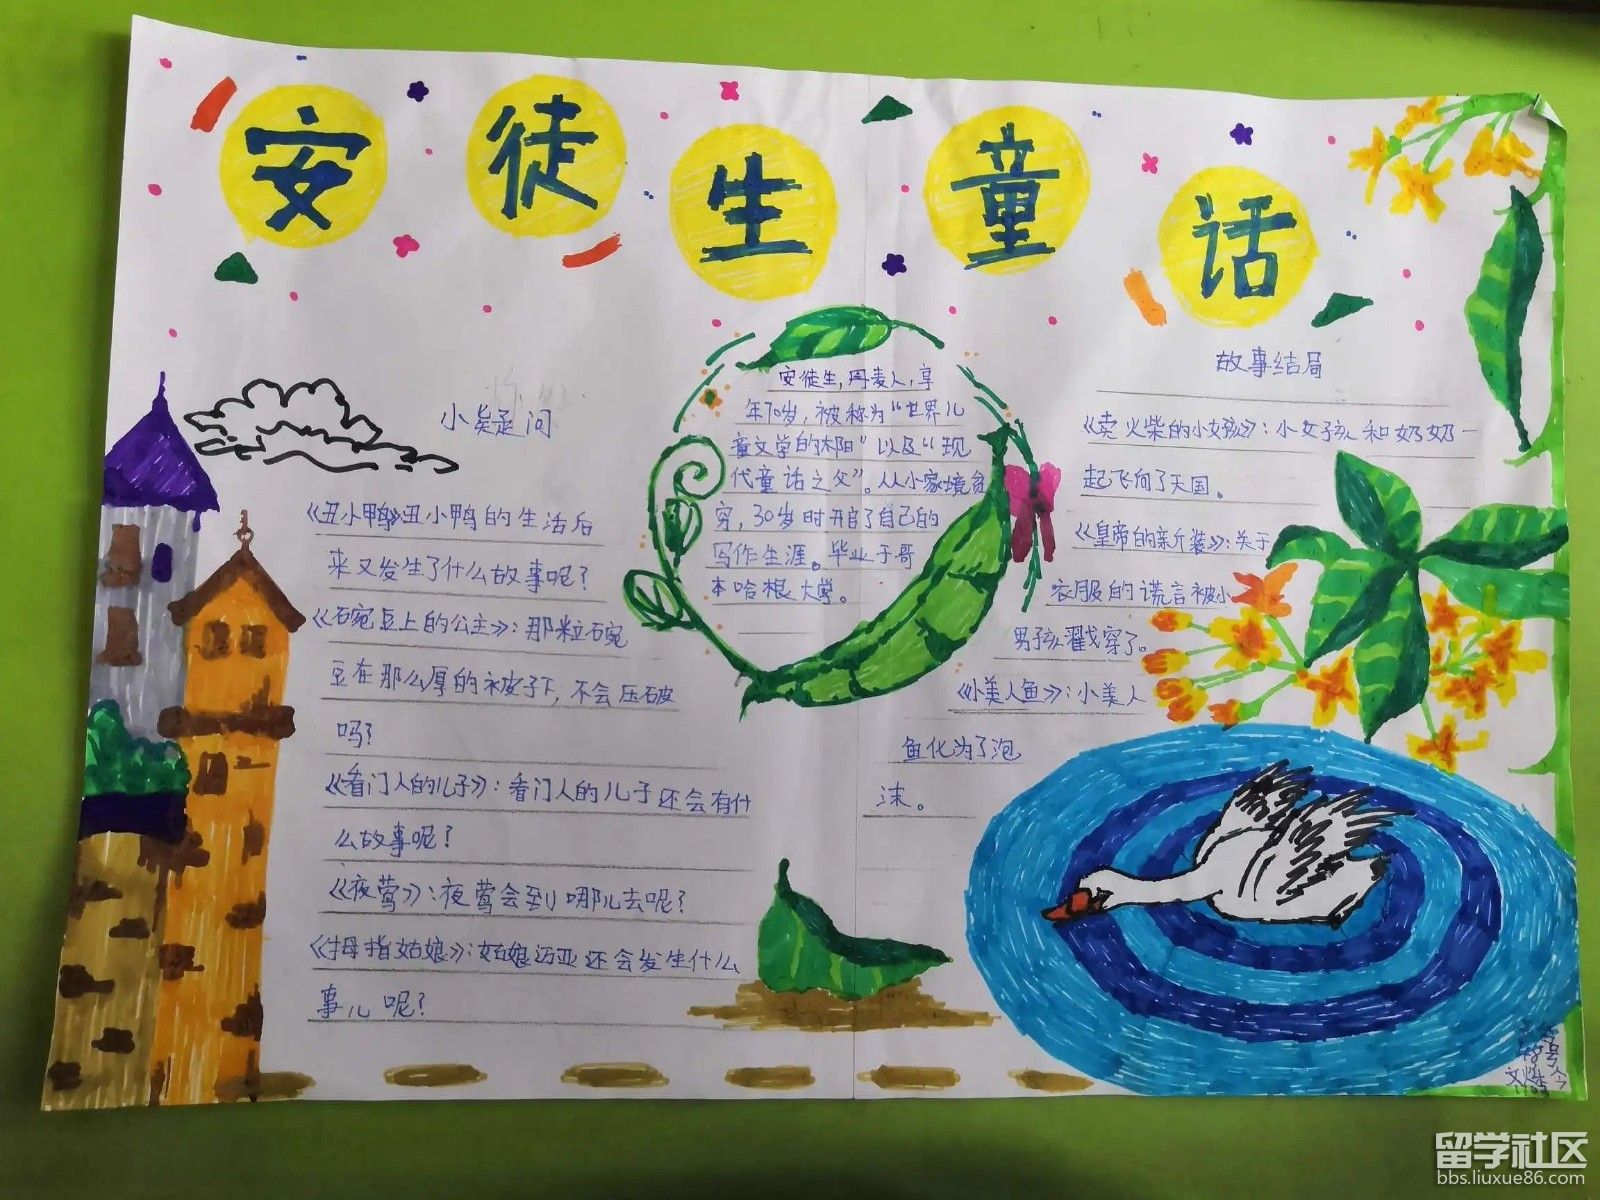 安徒生童话
小疑问
《丑小鸭》丑小鸭的生活后
来又发生了什么故事呢？
《豌豆上的公主》：那粒豌
豆在那么厚的被子下，不会压破
吗？
《看门人的儿子》：看门人的儿子还会有什
么故事呢？
《夜莺》：夜莺会到哪儿去呢？
《拇指姑娘》：姑娘迈亚还会发生什么
事儿呢？
安徒生，丹麦人，享
年70岁，被称为“世界儿
童文学的太阳”以及“现
代童话之父”。从小家境贫
穷，30岁时开启了自己的
写作生涯。毕业于哥
本哈根大学。
故事结局
《卖火柴的小女孩》：小女孩和奶奶一
起飞向了天国。
《皇帝的新装》：关于
衣服的谎言被小
男孩戳穿了。
《小美人鱼》：小美人
鱼化为了泡
沫。
48号
留学社区
bbs.liuxue86.com